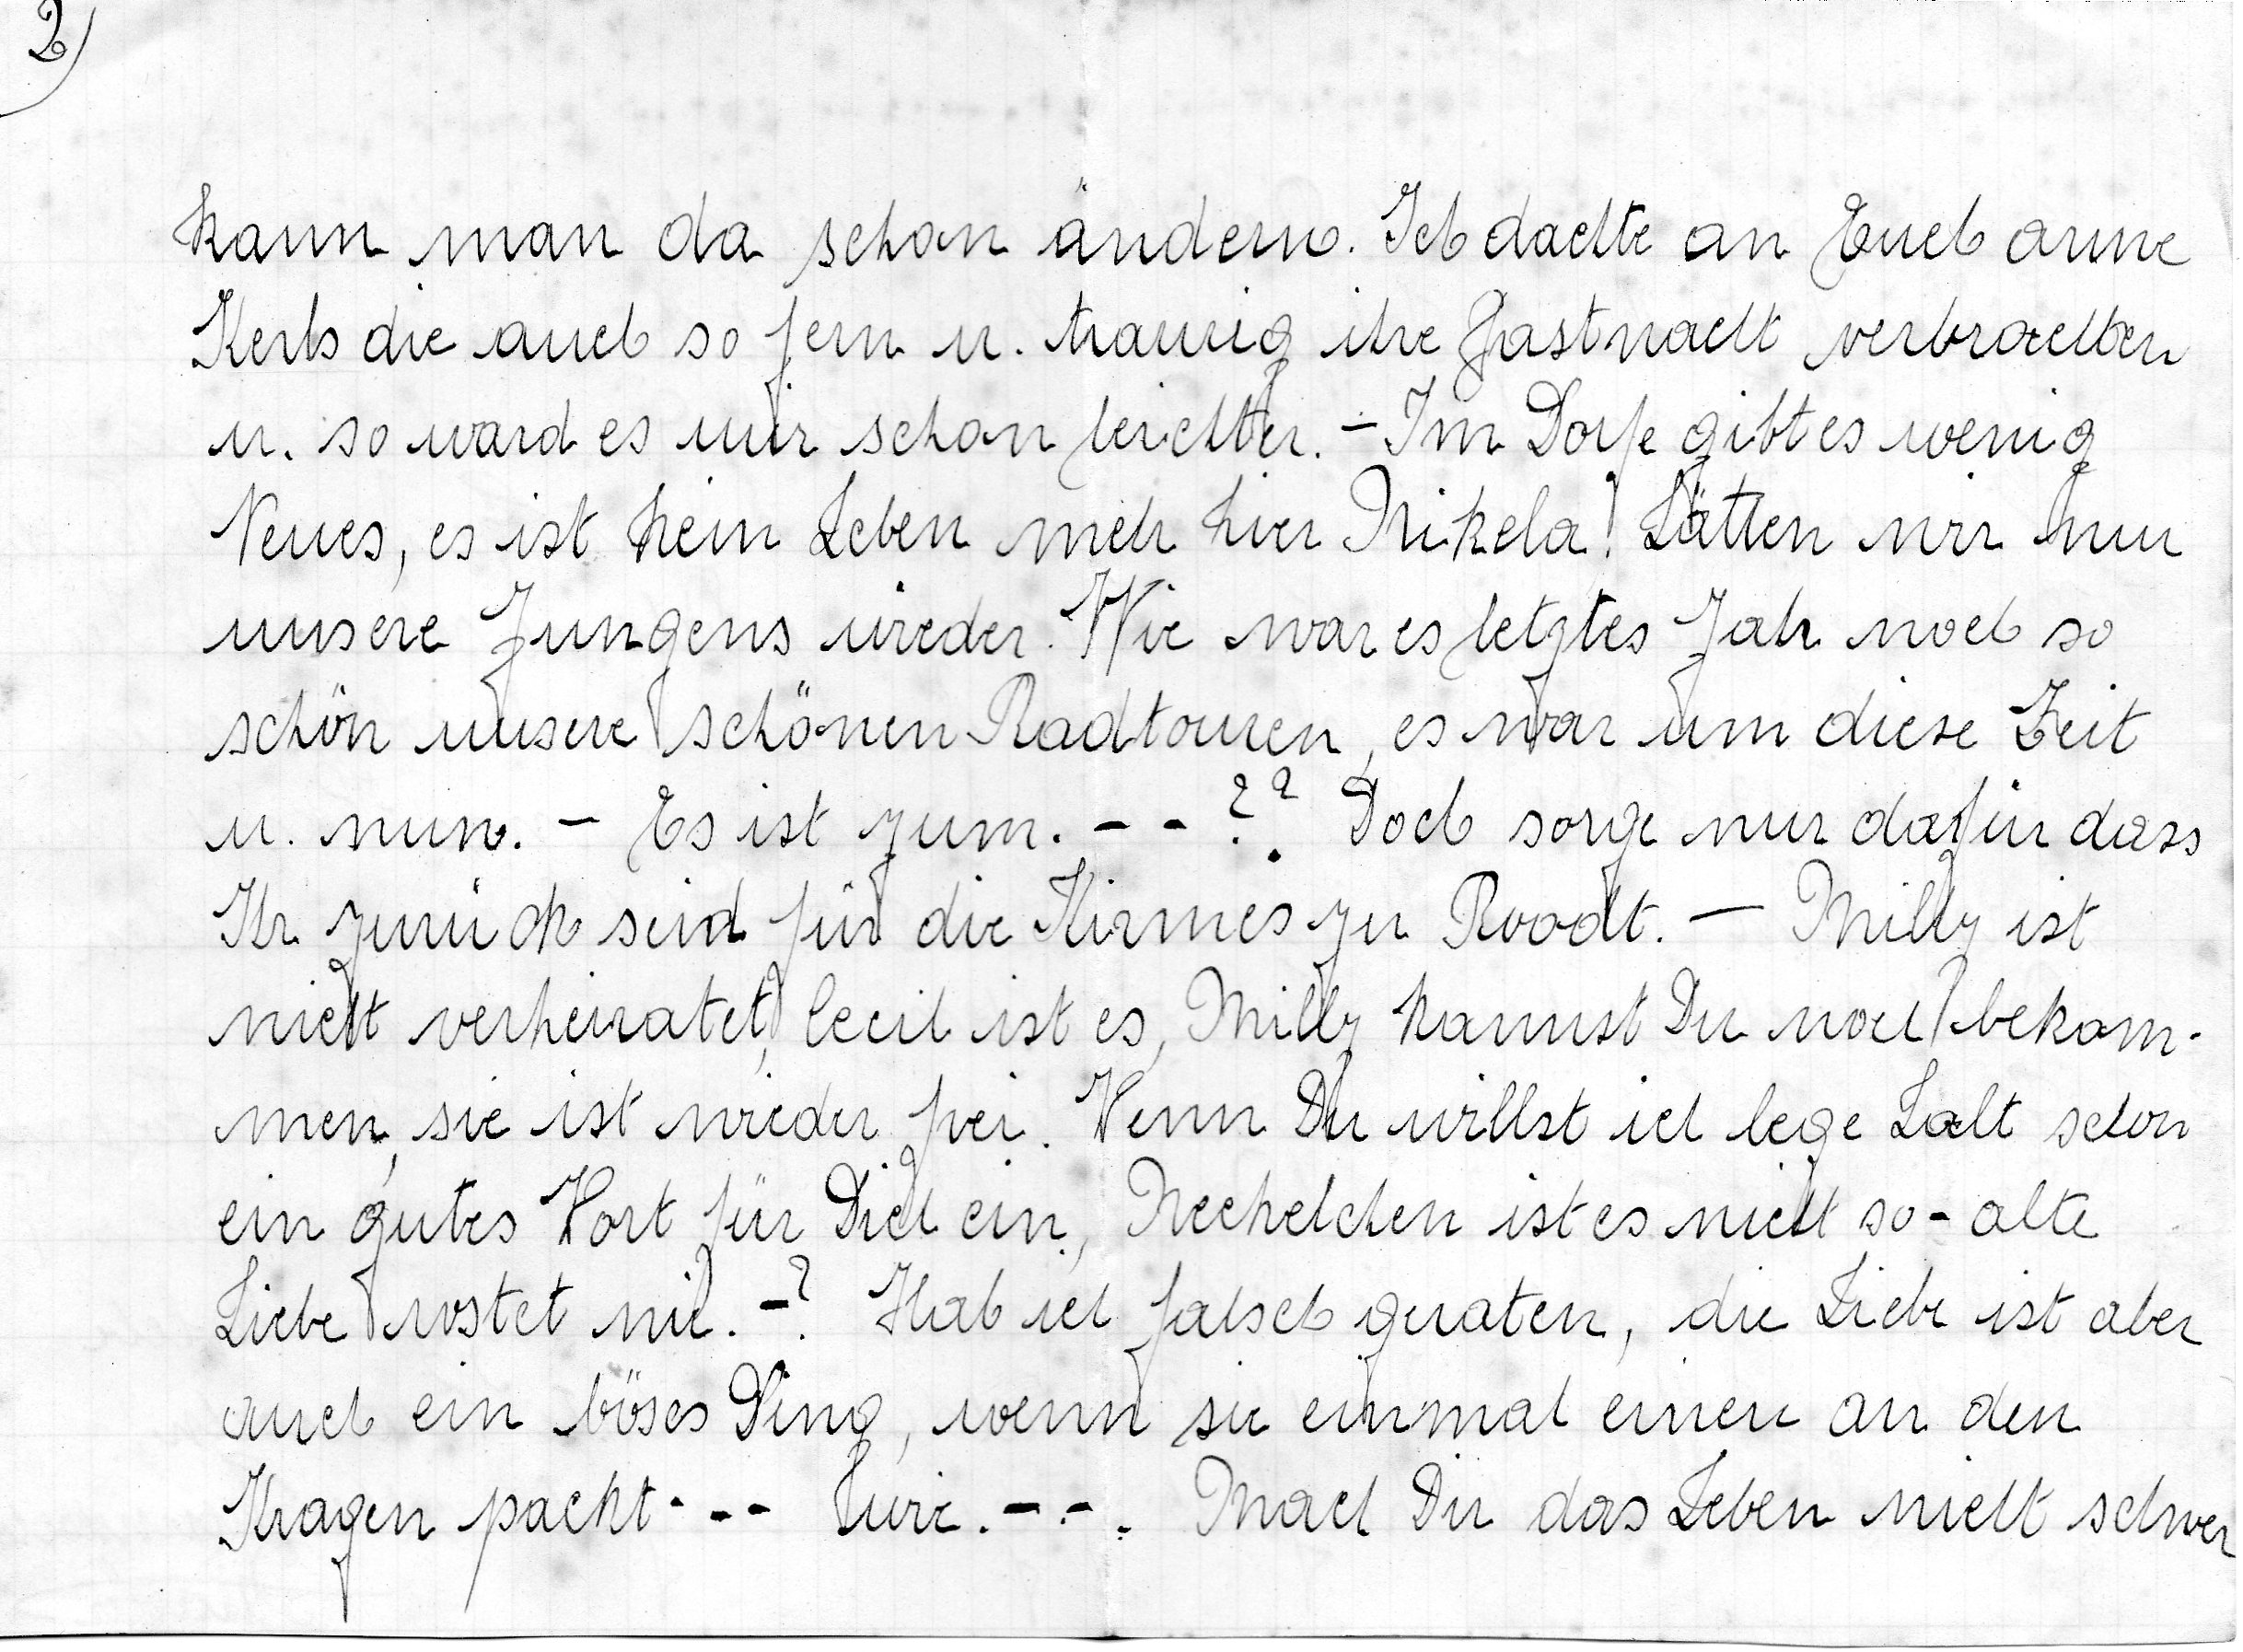 2)
kann man da schon ändern. Ich dachte an Euch arme
Kerls die auch so fern u. traurig ihre Fastnacht verbrachten
u. so ward es mir schon leichter. - Im Dorfe gibt es wenig
Neues, es ist kein Leben mehr hier Nikela! Hätten wir nur
unsere Jungens wieder. Wie war es letztes Jahr noch so
schön unsere schönen Radtouren, es war um diese Zeit
u. nun. - Es ist zum. - - ?? Doch sorge nur dafür dass
Ihr zurück seid für die Kirmes zu Roodt. — Milly ist
nicht verheiratet, Cecil ist es, Milly kannst Du noch bekom-
men, sie ist wieder frei. Wenn Du willst ich lege halt schon
ein gutes Wort für Dich ein, Nechelchen ist es nicht so - alte
Liebe rostet nie. - ? Hab ich falsch geraten, die Liebe ist aber
auch ein böses Ding, wenn sie einmal einen an den
Kragen packt - - - - - . Mach Dir das Leben nicht schwer